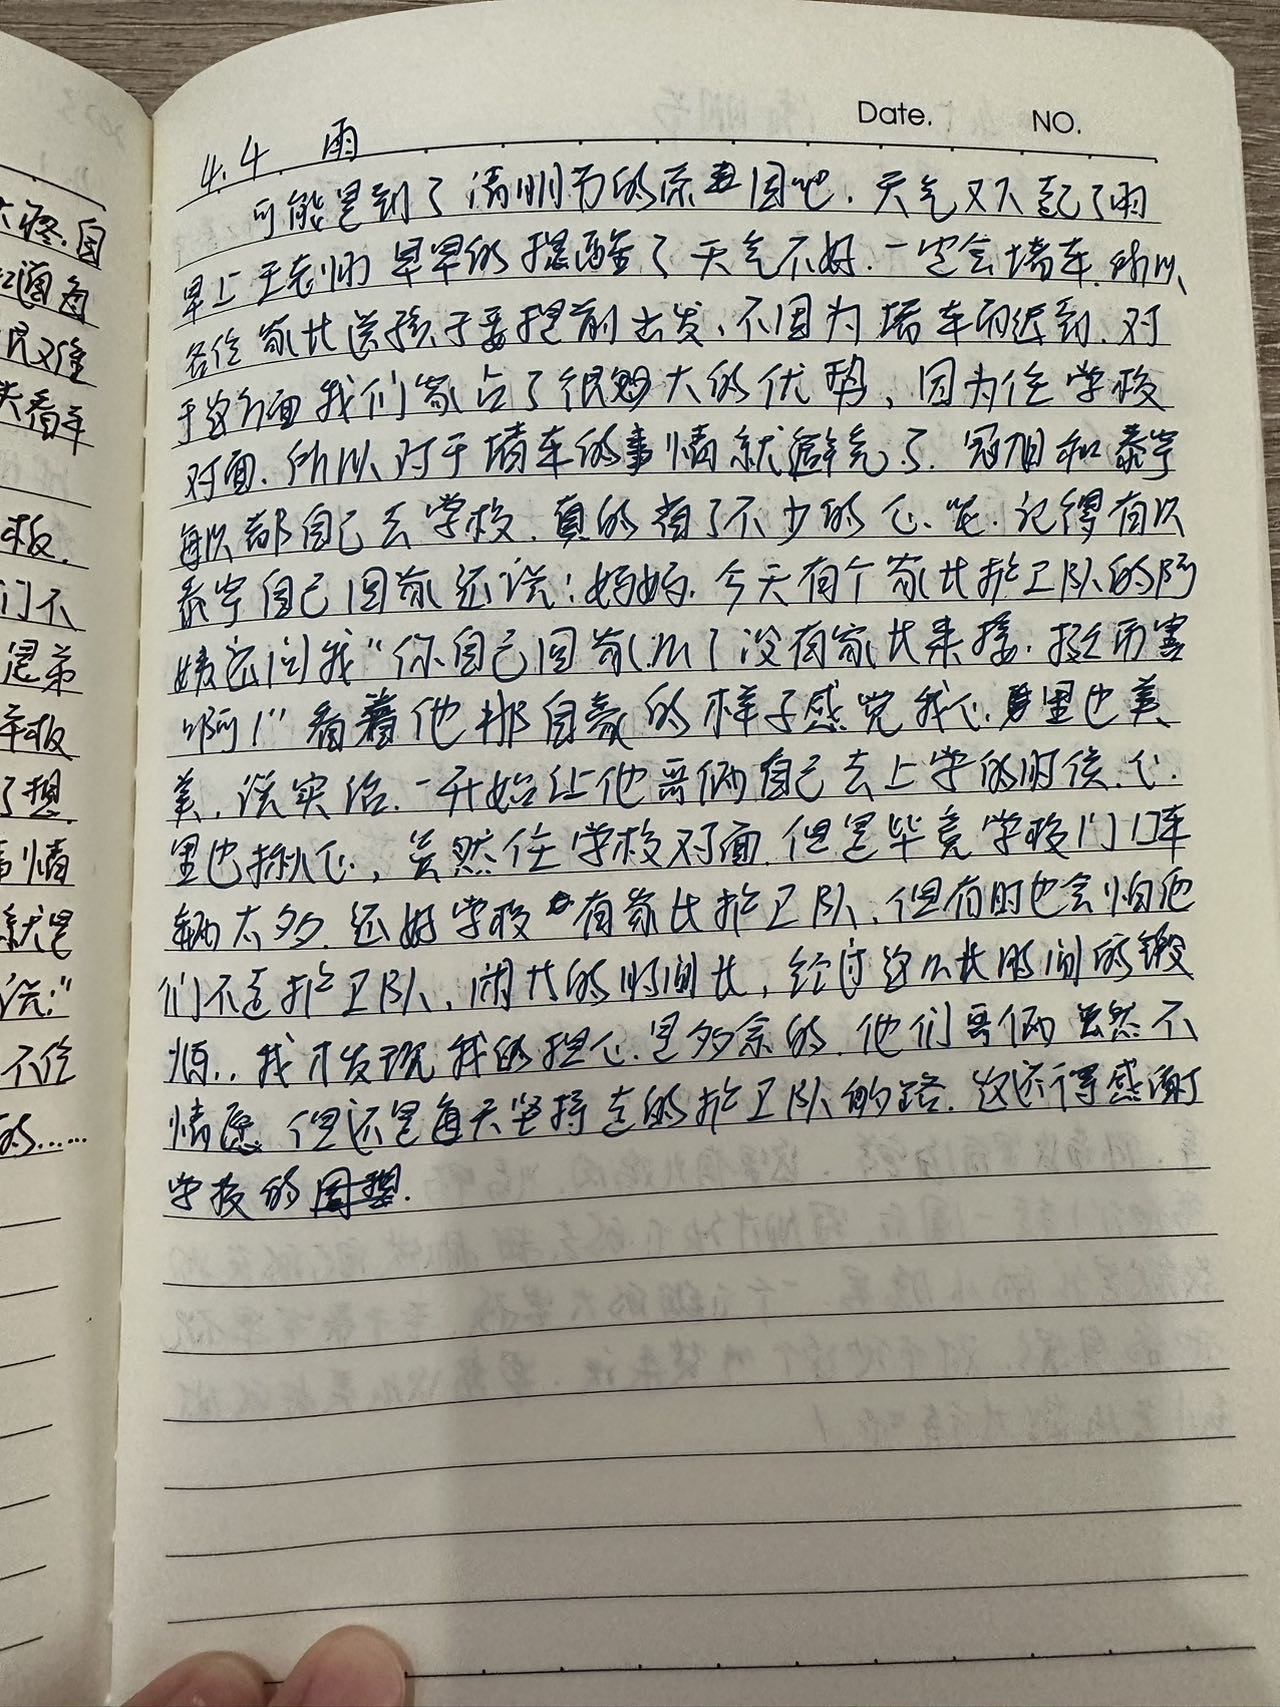 Date. NO.
4.4 雨
可能是到了清明节的原因吧.天气又下起了雨
早上王老师早早的提醒了天气不好.一定会堵车.所以
各位家长送孩子要提前出发、不因为堵车而迟到.对
于这方面我们家占了很大的优势、因为住学校
对面.所以对于堵车的事情就避免了.冠旭和泰宇
每次都自己去学校.真的省了不少的心呢.记得有次
泰宇自己回家还说:妈妈.今天有个家长护卫队的阿
姨还问我“你自己回家么!没有家长来接.挺厉害
啊!”看着他那自豪的样子感觉我心里也美
美.说实话.一开始让他哥俩自己去上学的时候.心
里也揪心,虽然住学校对面.但是毕竟学校门口车
辆太多.还好学校有家长护卫队.但有时也会怕他
们不走护卫队.闹的时间长,经过这么长时间的锻
炼..我才发现我的担心是多余的.他们哥俩虽然不
情愿.但还是每天坚持走的护卫队的路.这还得感谢
学校的
大疼.自
又难
看车
校.
们不
是弟
了想.
事情
就是
说:“
不给
的......